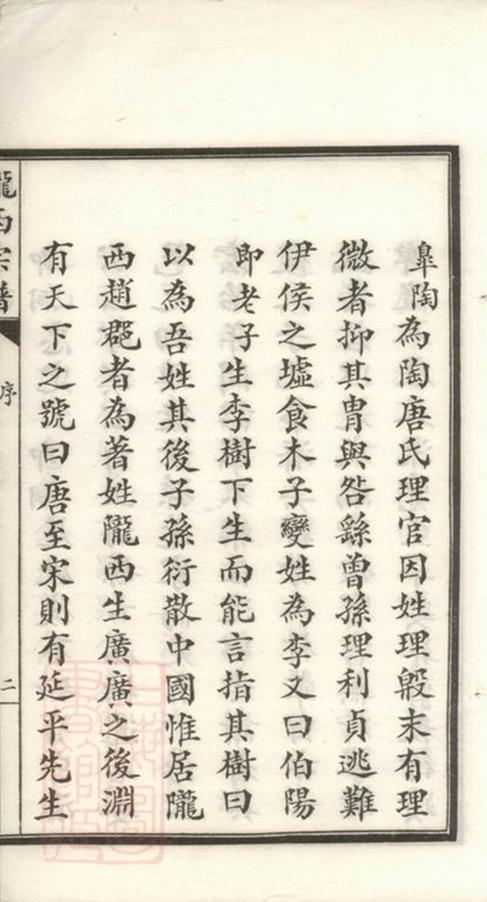 皐陶為陶唐氏理官因姓理殷末有理
微者抑其冑與咎繇曾孫理利貞逃難
伊侯之墟食木子變姓為李又曰伯陽
即老子生李樹下生而能言指其樹曰
以為吾姓其後子孫衍散中國惟居隴
西趙郡者為著姓隴西生廣廣之後淵
有天下之號曰唐至宋則有延平先生
隴西宗譜
序
二